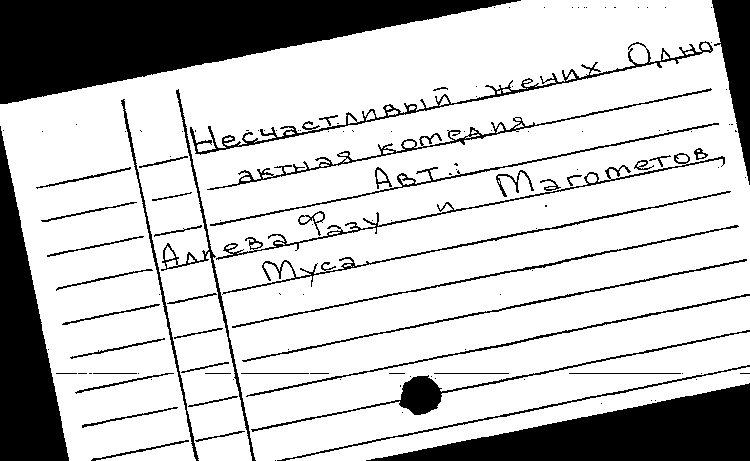 Несчастливый жених. Одно-
актная комедия.
Авт.:
Алиева, Фазу и Магометов,
Муса.